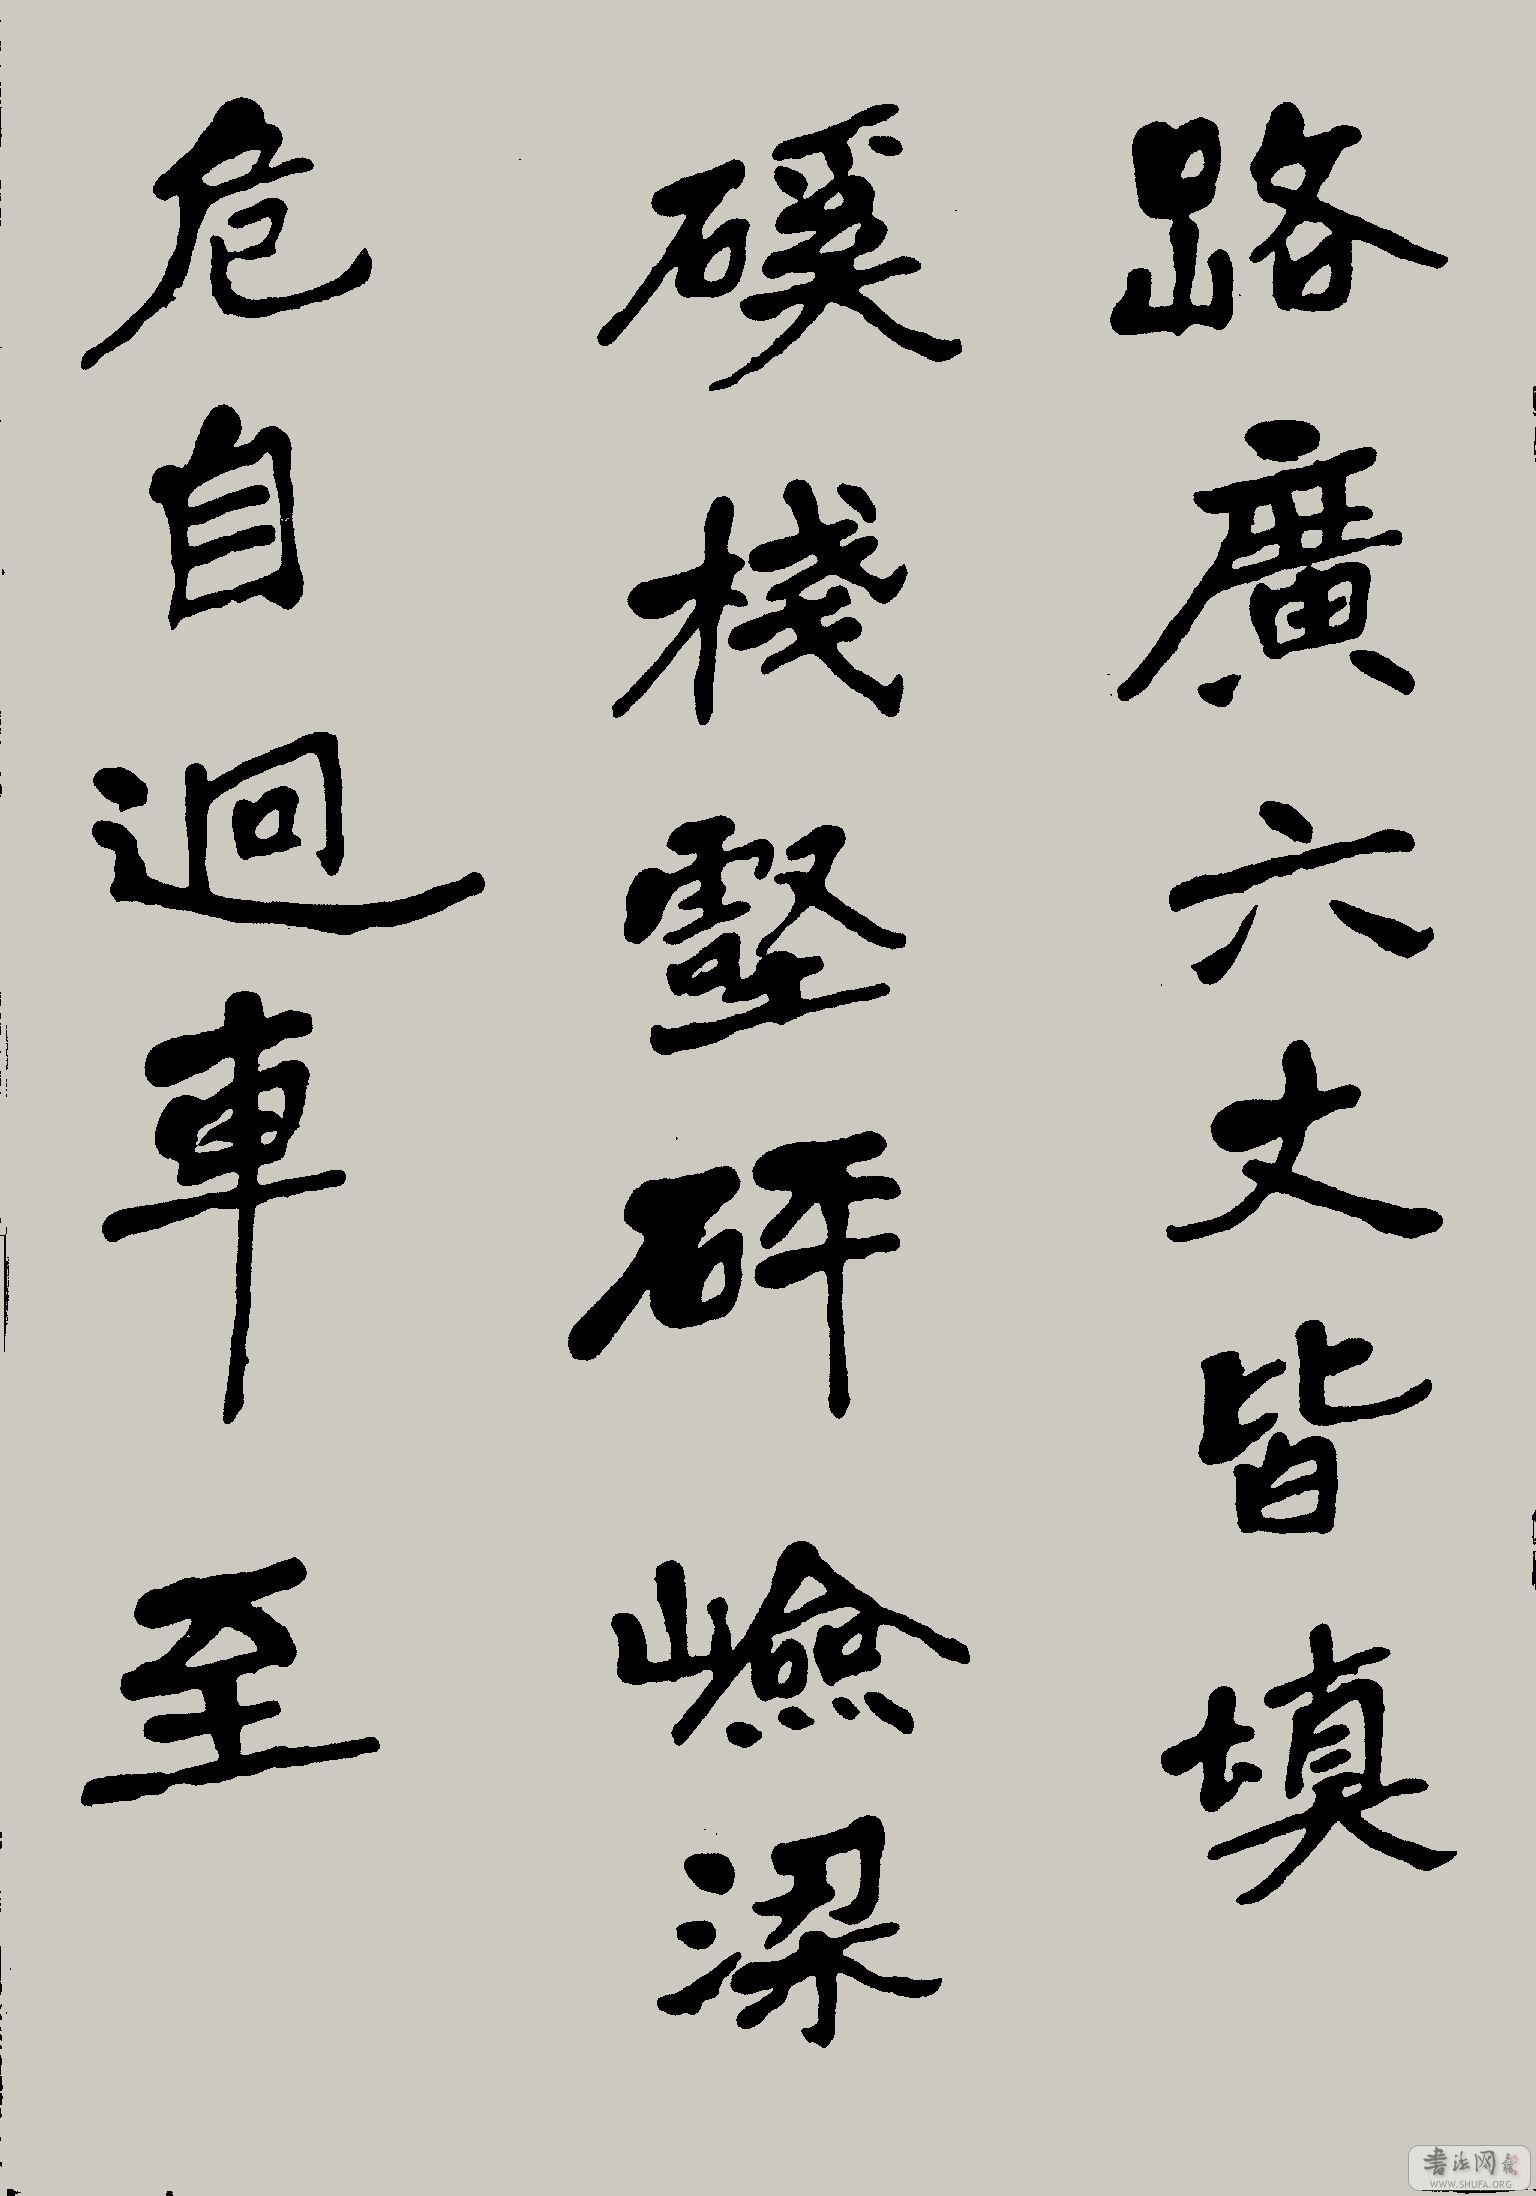 路廣六丈皆填
磎栈壑砰嶮梁
危自迴車至
書法网
WWW.SHUFA.ORG